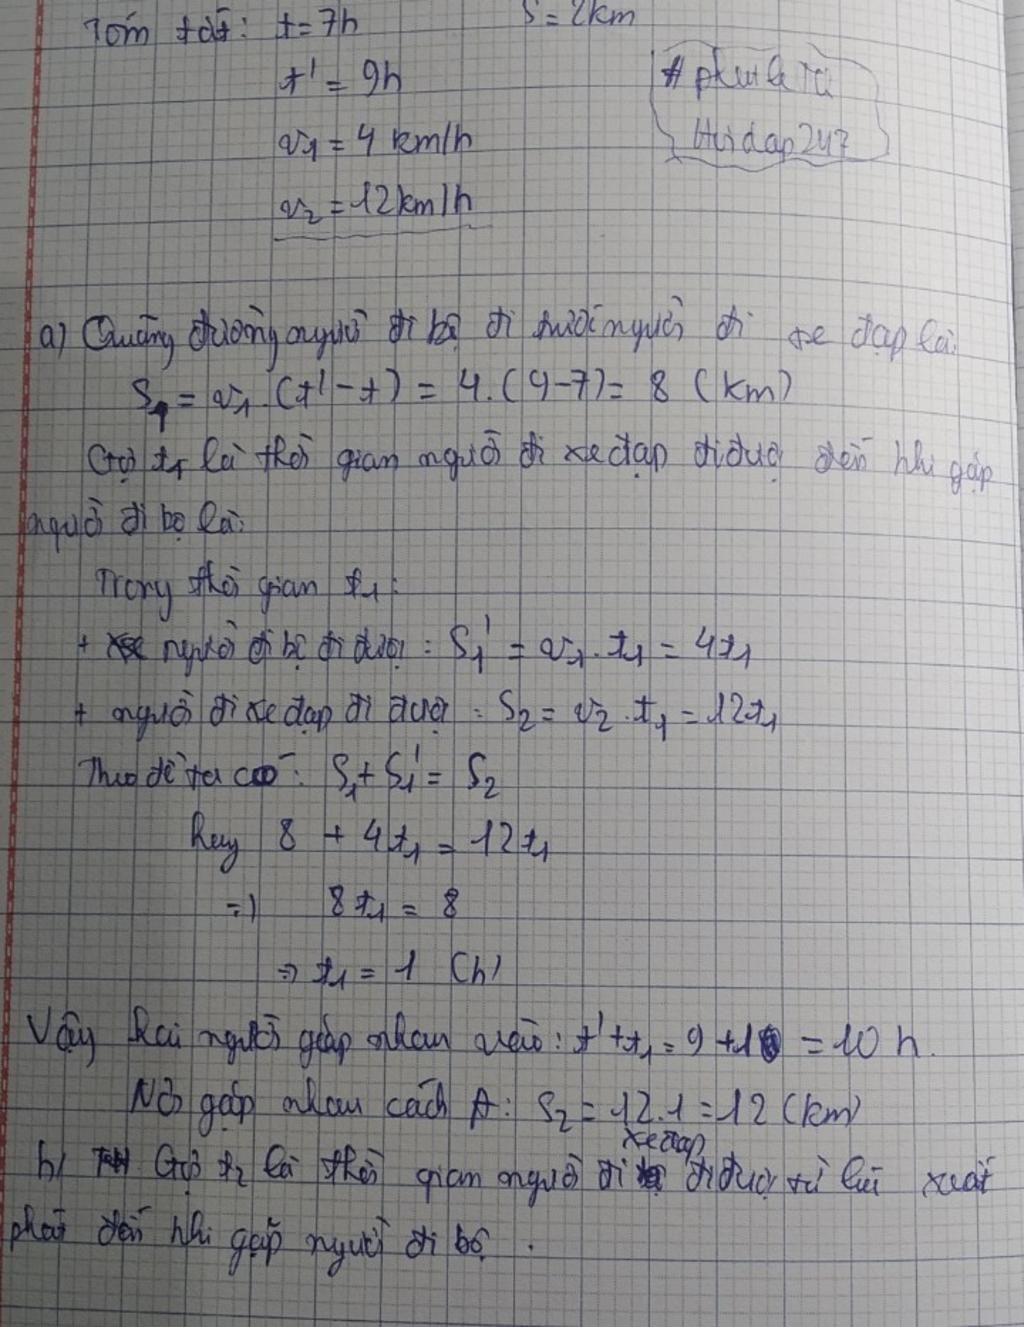 Tóm tắt: t = 7h S = 2km
t' = 9h
v₁ = 4 km/h
v₂ = 12km/h
Hoidap247
a) Quãng đường người đi bộ đi trước người đi xe đạp là:
S₁ = v₁.(t' - t) = 4.(9-7) = 8 (km)
Gọi t₁ là thời gian người đi xe đạp đi được đến khi gặp
người đi bộ là:
Trong thời gian t₁:
+ người đi bộ đi được: S₁' = v₁.t₁ = 4t₁
+ người đi xe đạp đi được: S₂ = v₂.t₁ = 12t₁
Theo đề ta có: S₁ + S₁' = S₂
Hay 8 + 4t₁ = 12t₁
=> 8t₁ = 8
=> t₁ = 1 (h)
Vậy hai người gặp nhau vào: t' + t₁ = 9 + 1 = 10 h.
Nơi gặp nhau cách A: S₂ = 12.1 = 12 (km)
b) Gọi t₂ là thời gian người đi xe đạp đi được từ lúc xuất
phát đến khi gặp người đi bộ.